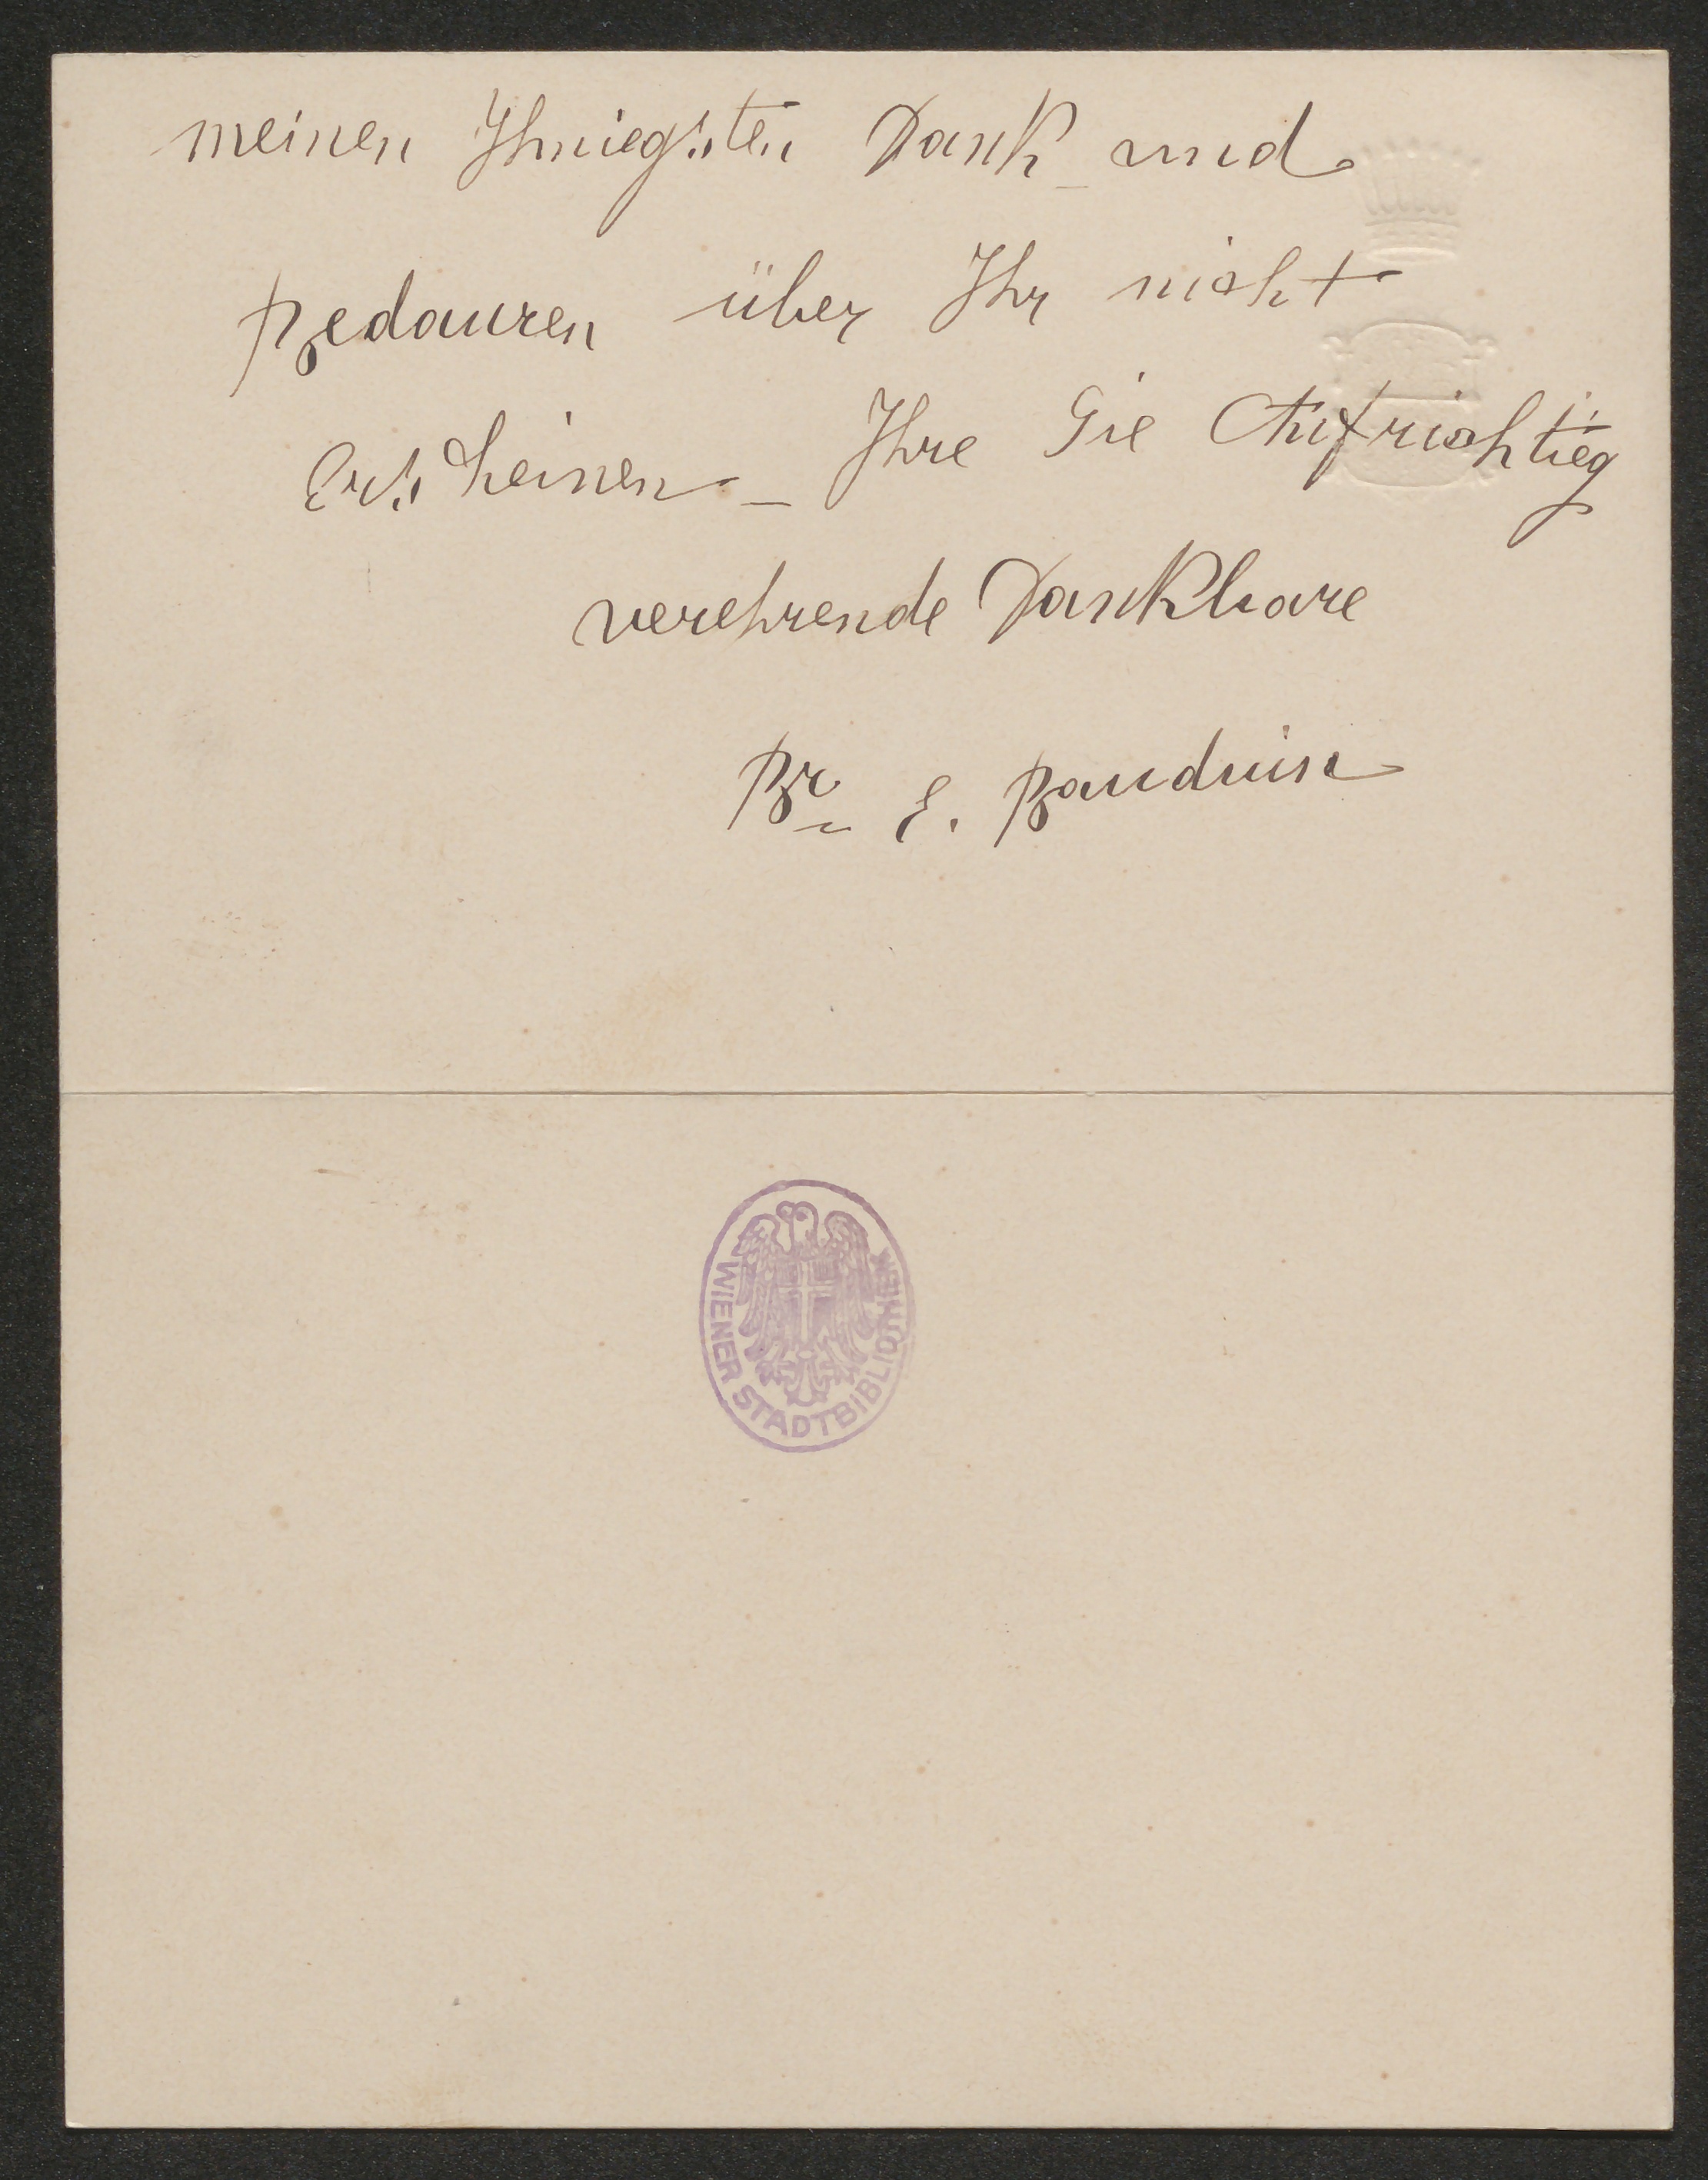 meinen Ihniegsten Dank und
Bedauren über Ihr nicht
Erscheinen – Ihre Sie Aufrichtieg
verehrende Dankbare
Br. E. Bauduin
WIENER STADTBIBLIOTHEK